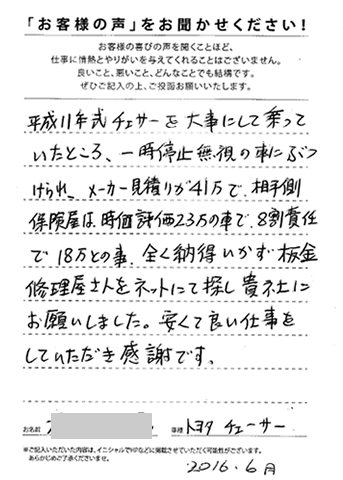 「お客様の声」をお聞かせください！
お客様の喜びの声を聞くことほど、
仕事に情熱とやりがいを与えてくれることはございません。
良いこと、悪いこと、どんなことでも結構です。
ぜひご記入の上、ご投函お願いいたします。
平成11年式チェサーを大事にして乗って
いたところ、一時停止無視の車にぶつ
けられ、メーカー見積りが41万で、相手側
保険屋は、時価評価23万の車で、8割責任
で18万との事、全く納得いかず板金
修理屋さんをネットにて探し貴社に
お願いしました。安くて良い仕事を
していただき感謝です。
お名前 車種 トヨタ チェーサー
※ご記入いただいた内容は、イニシャルでHPなどに掲載させていただく可能性がございます。
あらかじめご了承くださいませ。
2016.6月